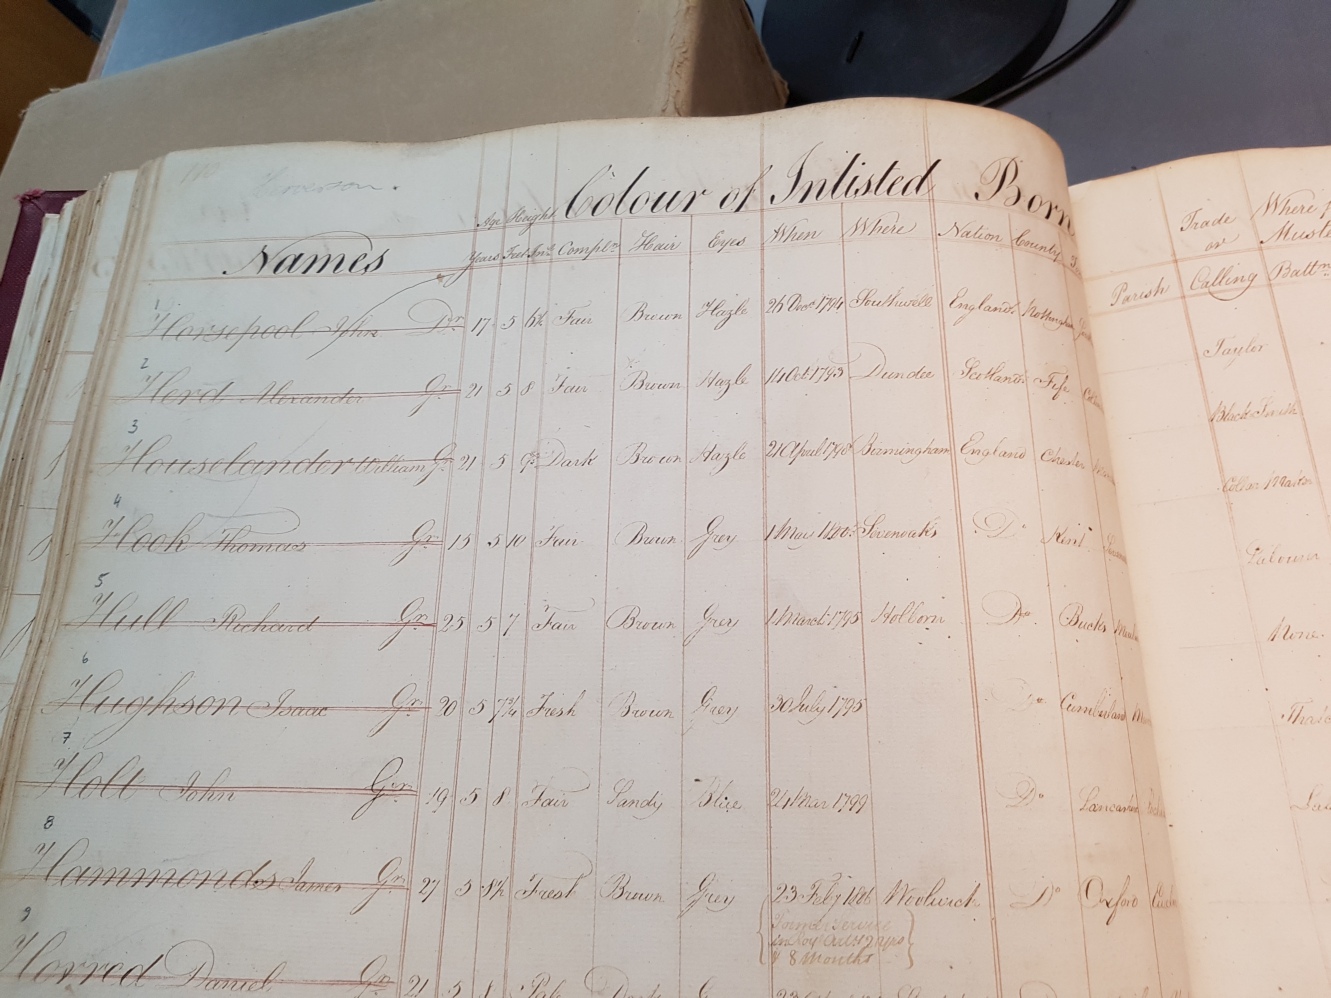 Colour of Inlisted Born
Age Height Trade Where
Names Years Feet In. Compln. Hair Eyes When Where Nation County Parish or Calling Muste Battn.
1 Horsepool John Dr. 17 5 6½ Fair Brown Hazle 26 Decr 1794 Southwell England Nottingham Taylor
2 Herd Alexander Gr. 21 5 8 Fair Brown Hazle 14 Oct 1793 Dundee Scotland Fife Black Smith
3 Houselander William Gr. 21 5 Dark Brown Hazle 21 April Birmingham England Chester
4 Hook Thomas Gr. 5 10 Fair Brown Grey 1 Sevenoaks Do. Kent Labourer
5 Hull Richard Gr. 25 5 7 Fair Brown Grey 1 March 1795 Holborn Do. Bucks None
6 Hughson Isaac Gr. 20 5 7¾ Fresh Brown Grey 30 July 1795 Do. Cumberland
7 Holt John Gr. 19 5 8 Fair Sandy Blue 24 Mar 1799 Do. Lancaster
8 Hammonds James Gr. 27 5 8½ Fresh Brown Grey 23 Feby 1806 Woolwich Do. Oxford
Former Service
in Roy Art 9 years
& 8 Months
9 Horred Daniel Gr. 21 5 8 Pale Dark